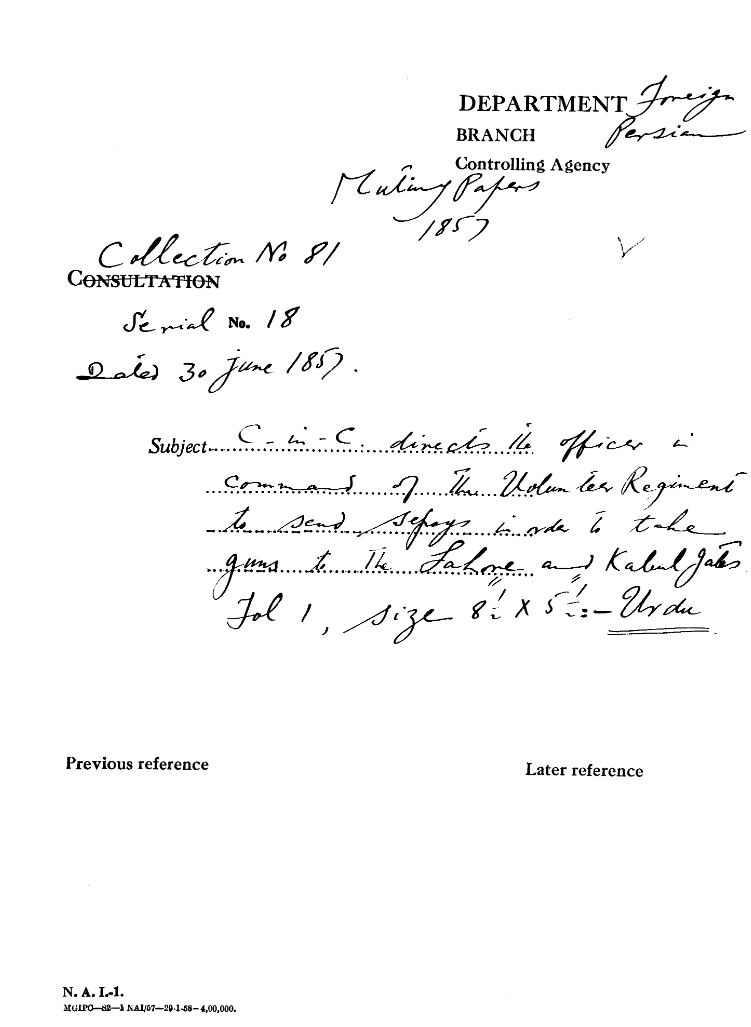 DEPARTMENT Foreign
BRANCH Persian
Controlling Agency
Mutiny Papers
1857
Collection No 81
CONSULTATION
Serial No. 18
Dated 30 June 1857.
Subject C-in-C. directs the officer in
command of the Volunteer Regiment
to send sepoys in order to take
guns to the Lahore and Kabul Gates
Fol 1, size 8½" X 5½":- Urdu
Previous reference
Later reference
N. A. I.-1.
MGIPC—82—1 NAI/57—29-1-58—4,00,000.